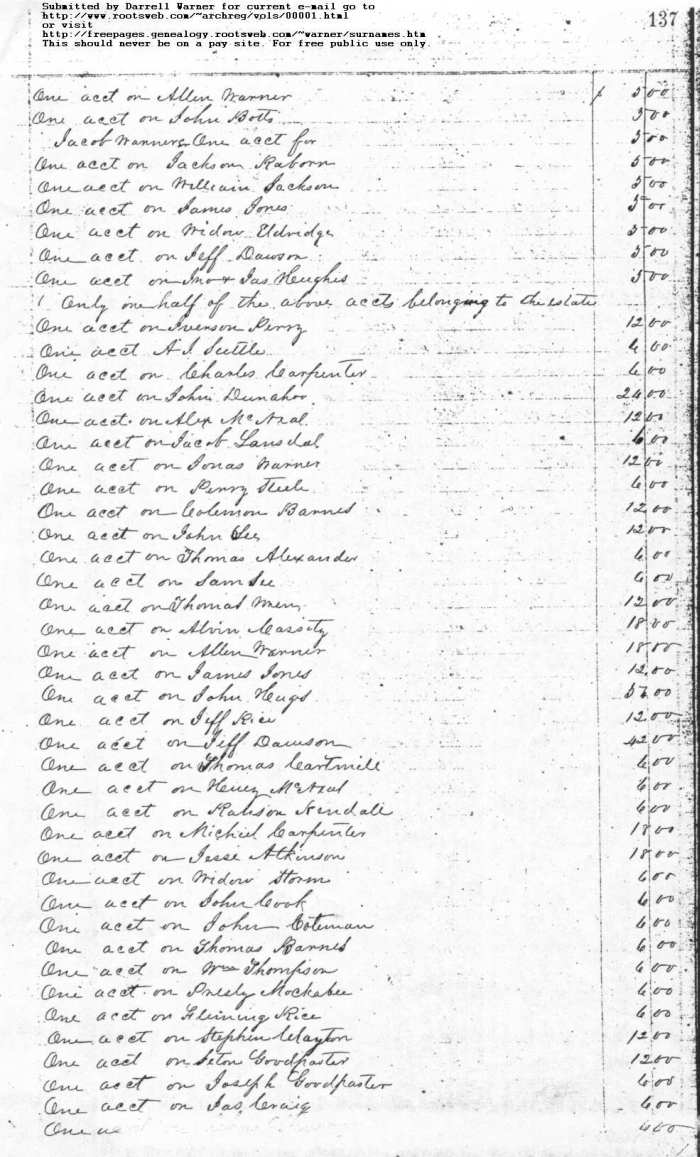 Submitted by Darrell Warner for current e-mail go to
http://www.rootsweb.com/~archreg/vols/00001.html
or visit
http://freepages.genealogy.rootsweb.com/~warner/surnames.htm
This should never be on a pay site. For free public use only.
137
One acct on Allen Warner 5 00
One acct on John Botts 5 00
Jacob Warners One acct for 5 00
One acct on Jackson Raborn 5 00
One acct on William Jackson 5 00
One acct on James Jones 5 00
One acct on Widow Eldridge 5 00
One acct on Jeff Dawson 5 00
One acct on Jno & Jas Hughes 5 00
Only one half of the above accts belonging to the estate
One acct on Iverson Perry 12 00
One acct A.J. Suttle 6 00
One acct on Charles Carpenter 6 00
One acct on John Dunahoo 24 00
One acct on Alex McAzal 12 00
One acct on Jacob Lansdal 6 00
One acct on Jonas Warner 12 00
One acct on Perry Steele 6 00
One acct on Colemon Barnes 12 00
One acct on John See 12 00
One acct on Thomas Alexander 6 00
One acct on Sam See 6 00
One acct on Thomas 12 00
One acct on Alvin Cassity 18 00
One acct on Allen Warner 18 00
One acct on James Jones 12 00
One acct on John Hugs 00
One acct on Jeff Rice 12 00
One acct on Jeff Dawson 42 00
One acct on Thomas Cartmill 6 00
One acct on Henry McAzal 6 00
One acct on Ranson Kendall 6 00
One acct on Michiel Carpenter 18 00
One acct on Jesse Atkinson 18 00
One acct on Widow Storm 6 00
One acct on John Cook 6 00
One acct on John Coteman 6 00
One acct on Thomas Barnes 6 00
One acct on Wm Thompson 6 00
One acct on Presly Mockabee 6 00
One acct on Fleming Rice 6 00
One acct on Stephen Clayton 12 00
One acct on Leton Goodpaster 12 00
One acct on Joseph Goodpaster 6 00
One acct on Jas Craig 6 00
One a 00